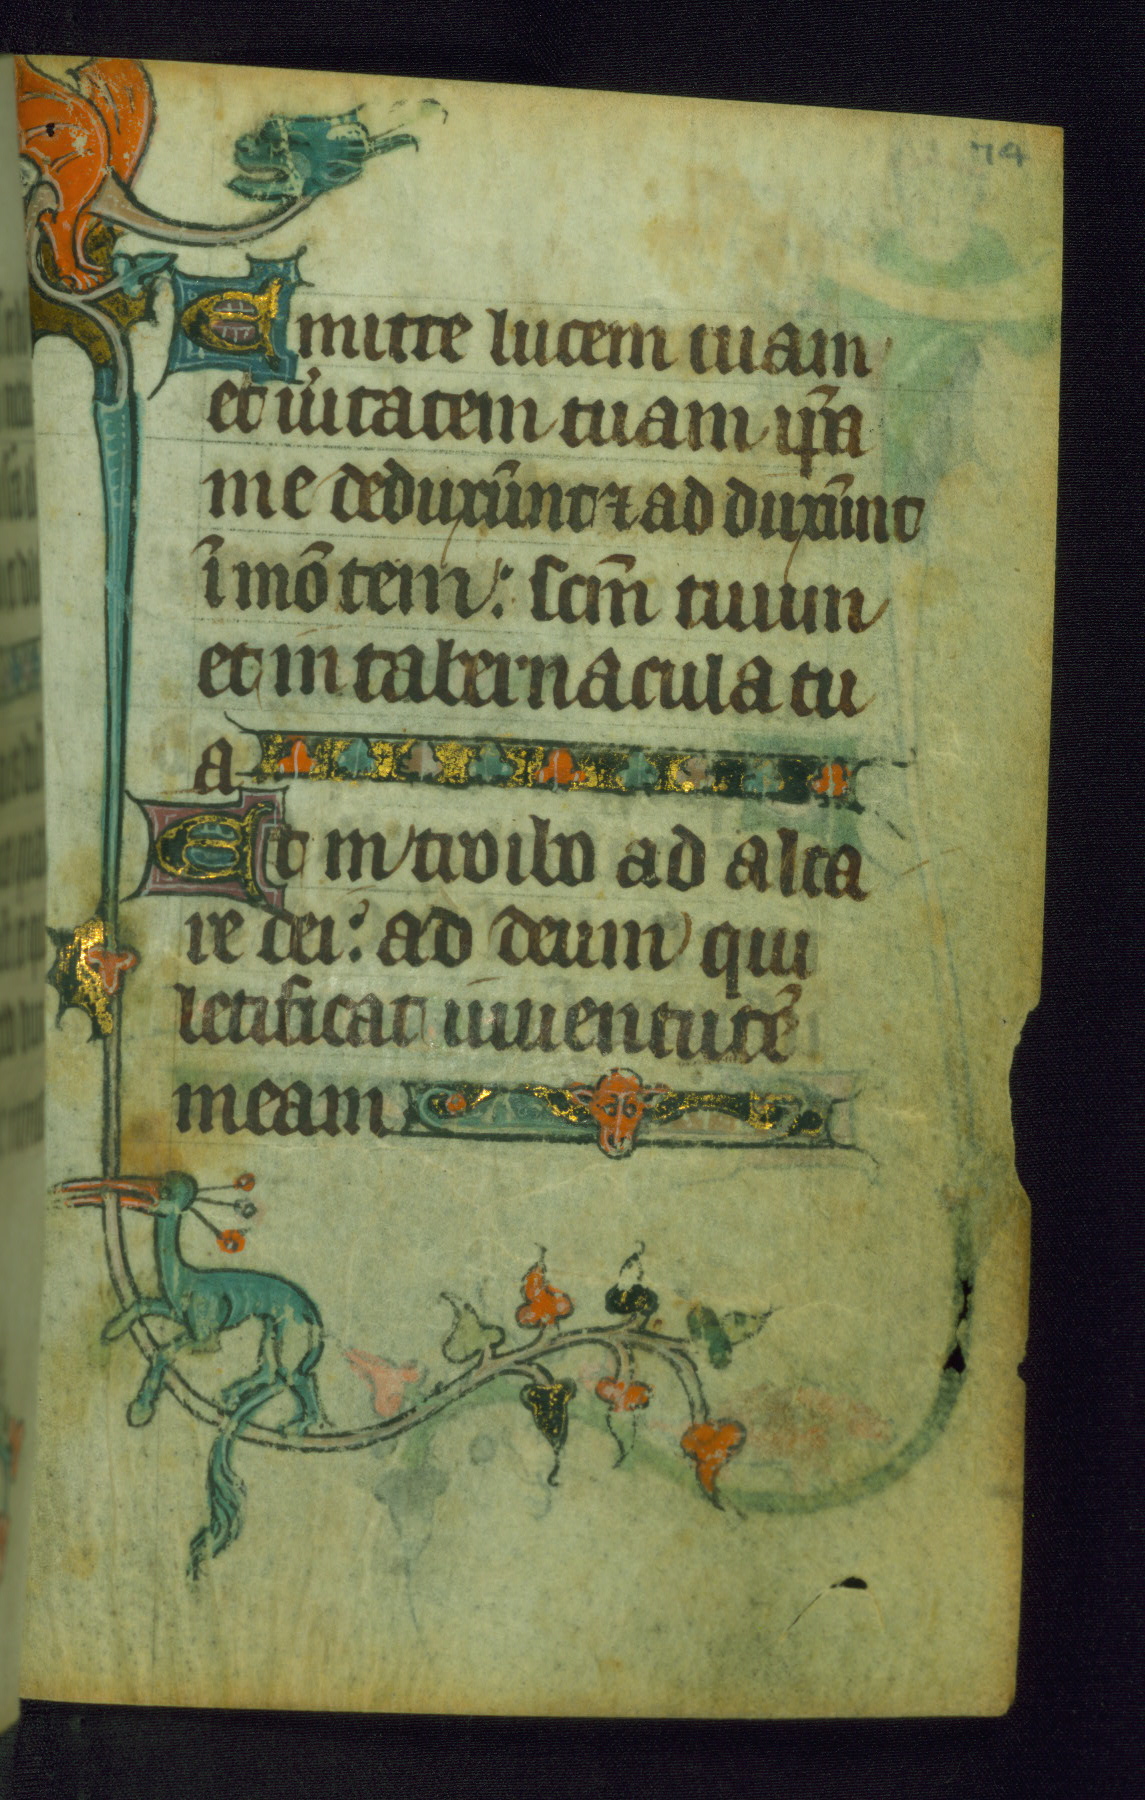 74
Emitte lucem tuam
et ũitatem tuam ip̃a
me deduxũnt ⁊ ad duxũnt
ĩ mõtem: scm̃ tuum
et in tabernacula tu
a
Et introibo ad alta
re dei: ad deum qui
letificat iuuentutẽ
meam